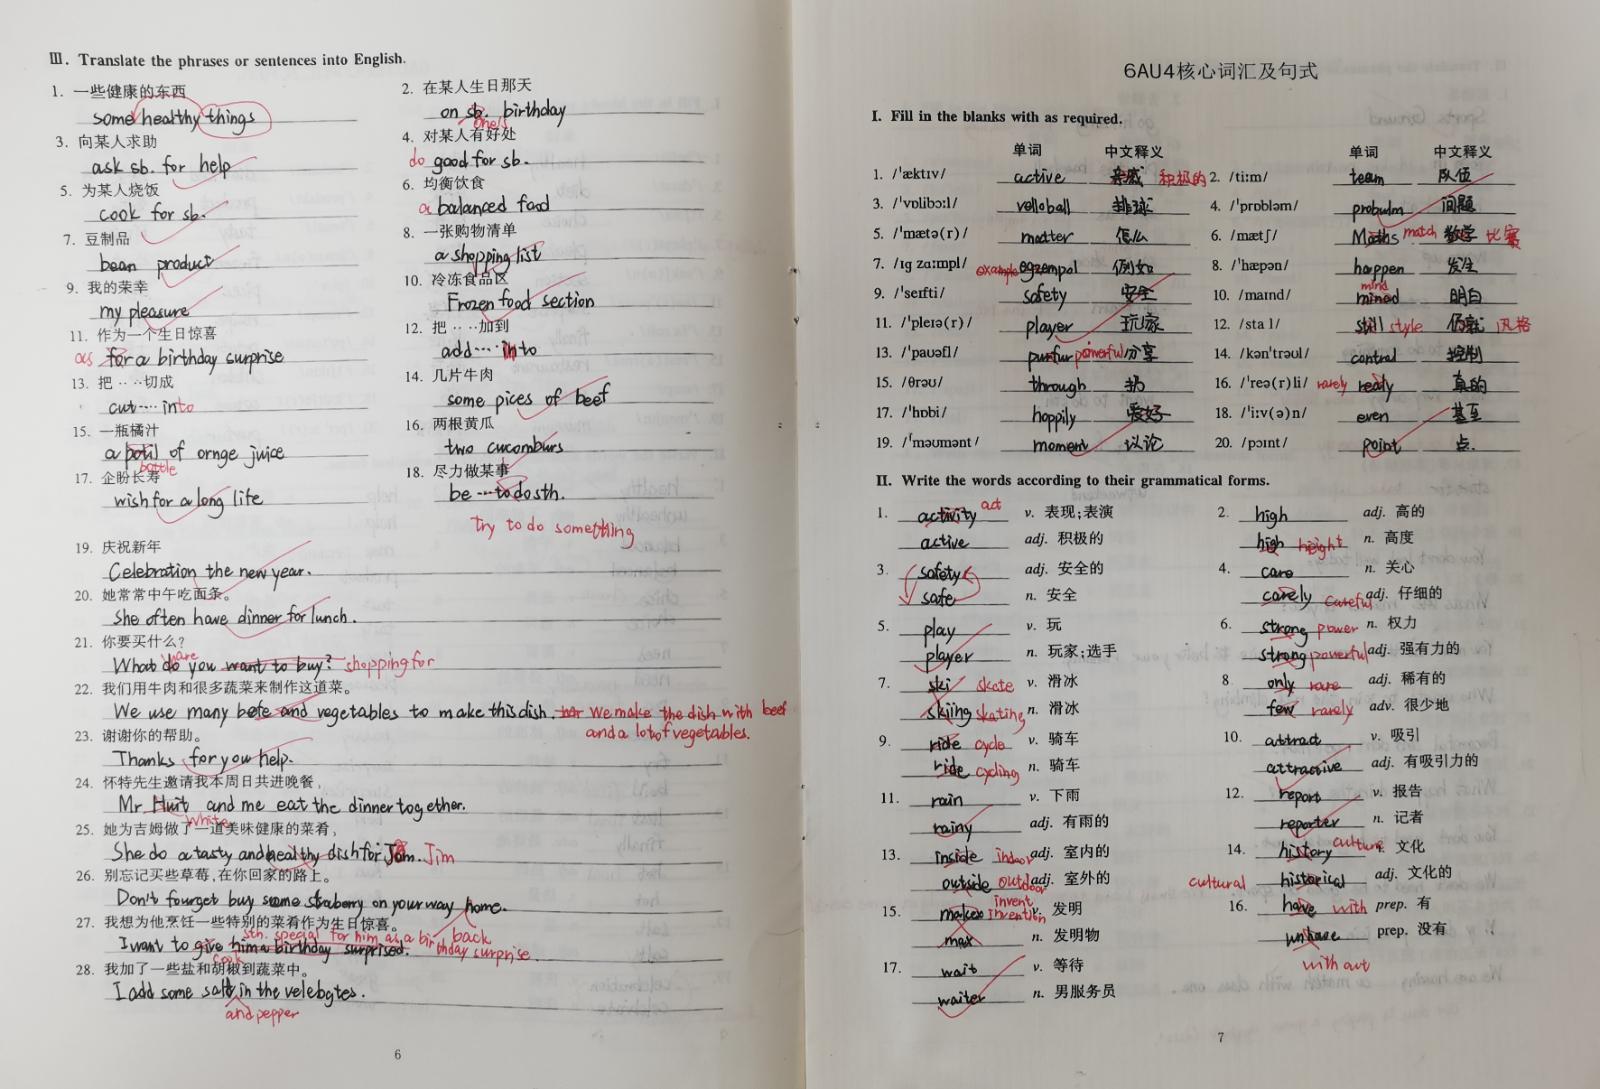 III. Translate the phrases or sentences into English.
1. 一些健康的东西
some healthy things
2. 在某人生日那天
on sb. birthday
one's
3. 向某人求助
ask sb. for help
4. 对某人有好处
do good for sb.
5. 为某人烧饭
cook for sb.
6. 均衡饮食
a balanced food
7. 豆制品
bean product
8. 一张购物清单
a shopping list
9. 我的荣幸
my pleasure
10. 冷冻食品区
Frozen food section
11. 作为一个生日惊喜
as for a birthday surprise
12. 把····加到
add···· into
13. 把····切成
cut···· into
14. 几片牛肉
some pices of beef
15. 一瓶橘汁
a potil of ornge juice
bottle
16. 两根黄瓜
two cucomburs
17. 企盼长寿
wish for a long life
18. 尽力做某事
be ···to do sth.
try to do something
19. 庆祝新年
Celebration the new year.
20. 她常常中午吃面条。
She often have dinner for lunch.
21. 你要买什么?
What do you want to buy? shopping for
are
22. 我们用牛肉和很多蔬菜来制作这道菜。
We use many befe and vegetables to make this dish. We make the dish with beef
and a lot of vegetables.
23. 谢谢你的帮助。
Thanks for you help.
24. 怀特先生邀请我本周日共进晚餐,
Mr. Huit and me eat the dinner together.
White
25. 她为吉姆做了一道美味健康的菜肴,
She do a tasty and healthy dish for Jam. Jim
26. 别忘记买些草莓,在你回家的路上。
Don't fourget buy some straberry on your way home.
back
27. 我想为他烹饪一些特别的菜肴作为生日惊喜。
sth. special for him as a birthday surprise.
I want to give him a birthday surprised.
cook
28. 我加了一些盐和胡椒到蔬菜中。
I add some salt in the velebgtes.
and pepper
6
6AU4核心词汇及句式
I. Fill in the blanks with as required.
单词 中文释义 单词 中文释义
1. /ˈæktɪv/ active 积极的
2. /tiːm/ team 队伍
3. /ˈvɒlibɔːl/ volloball 排球
4. /ˈprɒbləm/ probulm 问题
5. /ˈmætə(r)/ matter 怎么
6. /mætʃ/ Maths match 数学 比赛
7. /ɪɡˈzɑːmpl/ example egzempol 例如
8. /ˈhæpən/ happen 发生
9. /ˈseɪfti/ safety 安全
10. /maɪnd/ mined 明白
mind
11. /ˈpleɪə(r)/ player 玩家
12. /staɪl/ still style 仍就 风格
13. /ˈpaʊəfl/ punfur powerful 分享
14. /kənˈtrəʊl/ control 控制
15. /θrəʊ/ through 扔
16. /ˈreə(r)li/ rarely realy 真的
17. /ˈhɒbi/ hoppily 爱好
18. /ˈiːv(ə)n/ even 甚至
19. /ˈməʊmənt/ moment 议论
20. /pɔɪnt/ point 点.
II. Write the words according to their grammatical forms.
1. activity act v. 表现;表演
active adj. 积极的
2. high adj. 高的
high height n. 高度
3. safety adj. 安全的
safe n. 安全
4. care n. 关心
carely careful adj. 仔细的
5. play v. 玩
player n. 玩家;选手
6. strong power n. 权力
strong powerful adj. 强有力的
7. ski skate v. 滑冰
skiing skating n. 滑冰
8. only rare adj. 稀有的
few rarely adv. 很少地
9. ride cycle v. 骑车
ride cycling n. 骑车
10. attract v. 吸引
attractive adj. 有吸引力的
11. rain v. 下雨
rainy adj. 有雨的
12. report v. 报告
reporter n. 记者
13. inside indoor adj. 室内的
outside outdoor adj. 室外的
14. history culture n. 文化
cultural historical adj. 文化的
15. makes invent v. 发明
invention
max n. 发明物
16. have with prep. 有
unhave prep. 没有
without
17. wait v. 等待
waiter n. 男服务员
7